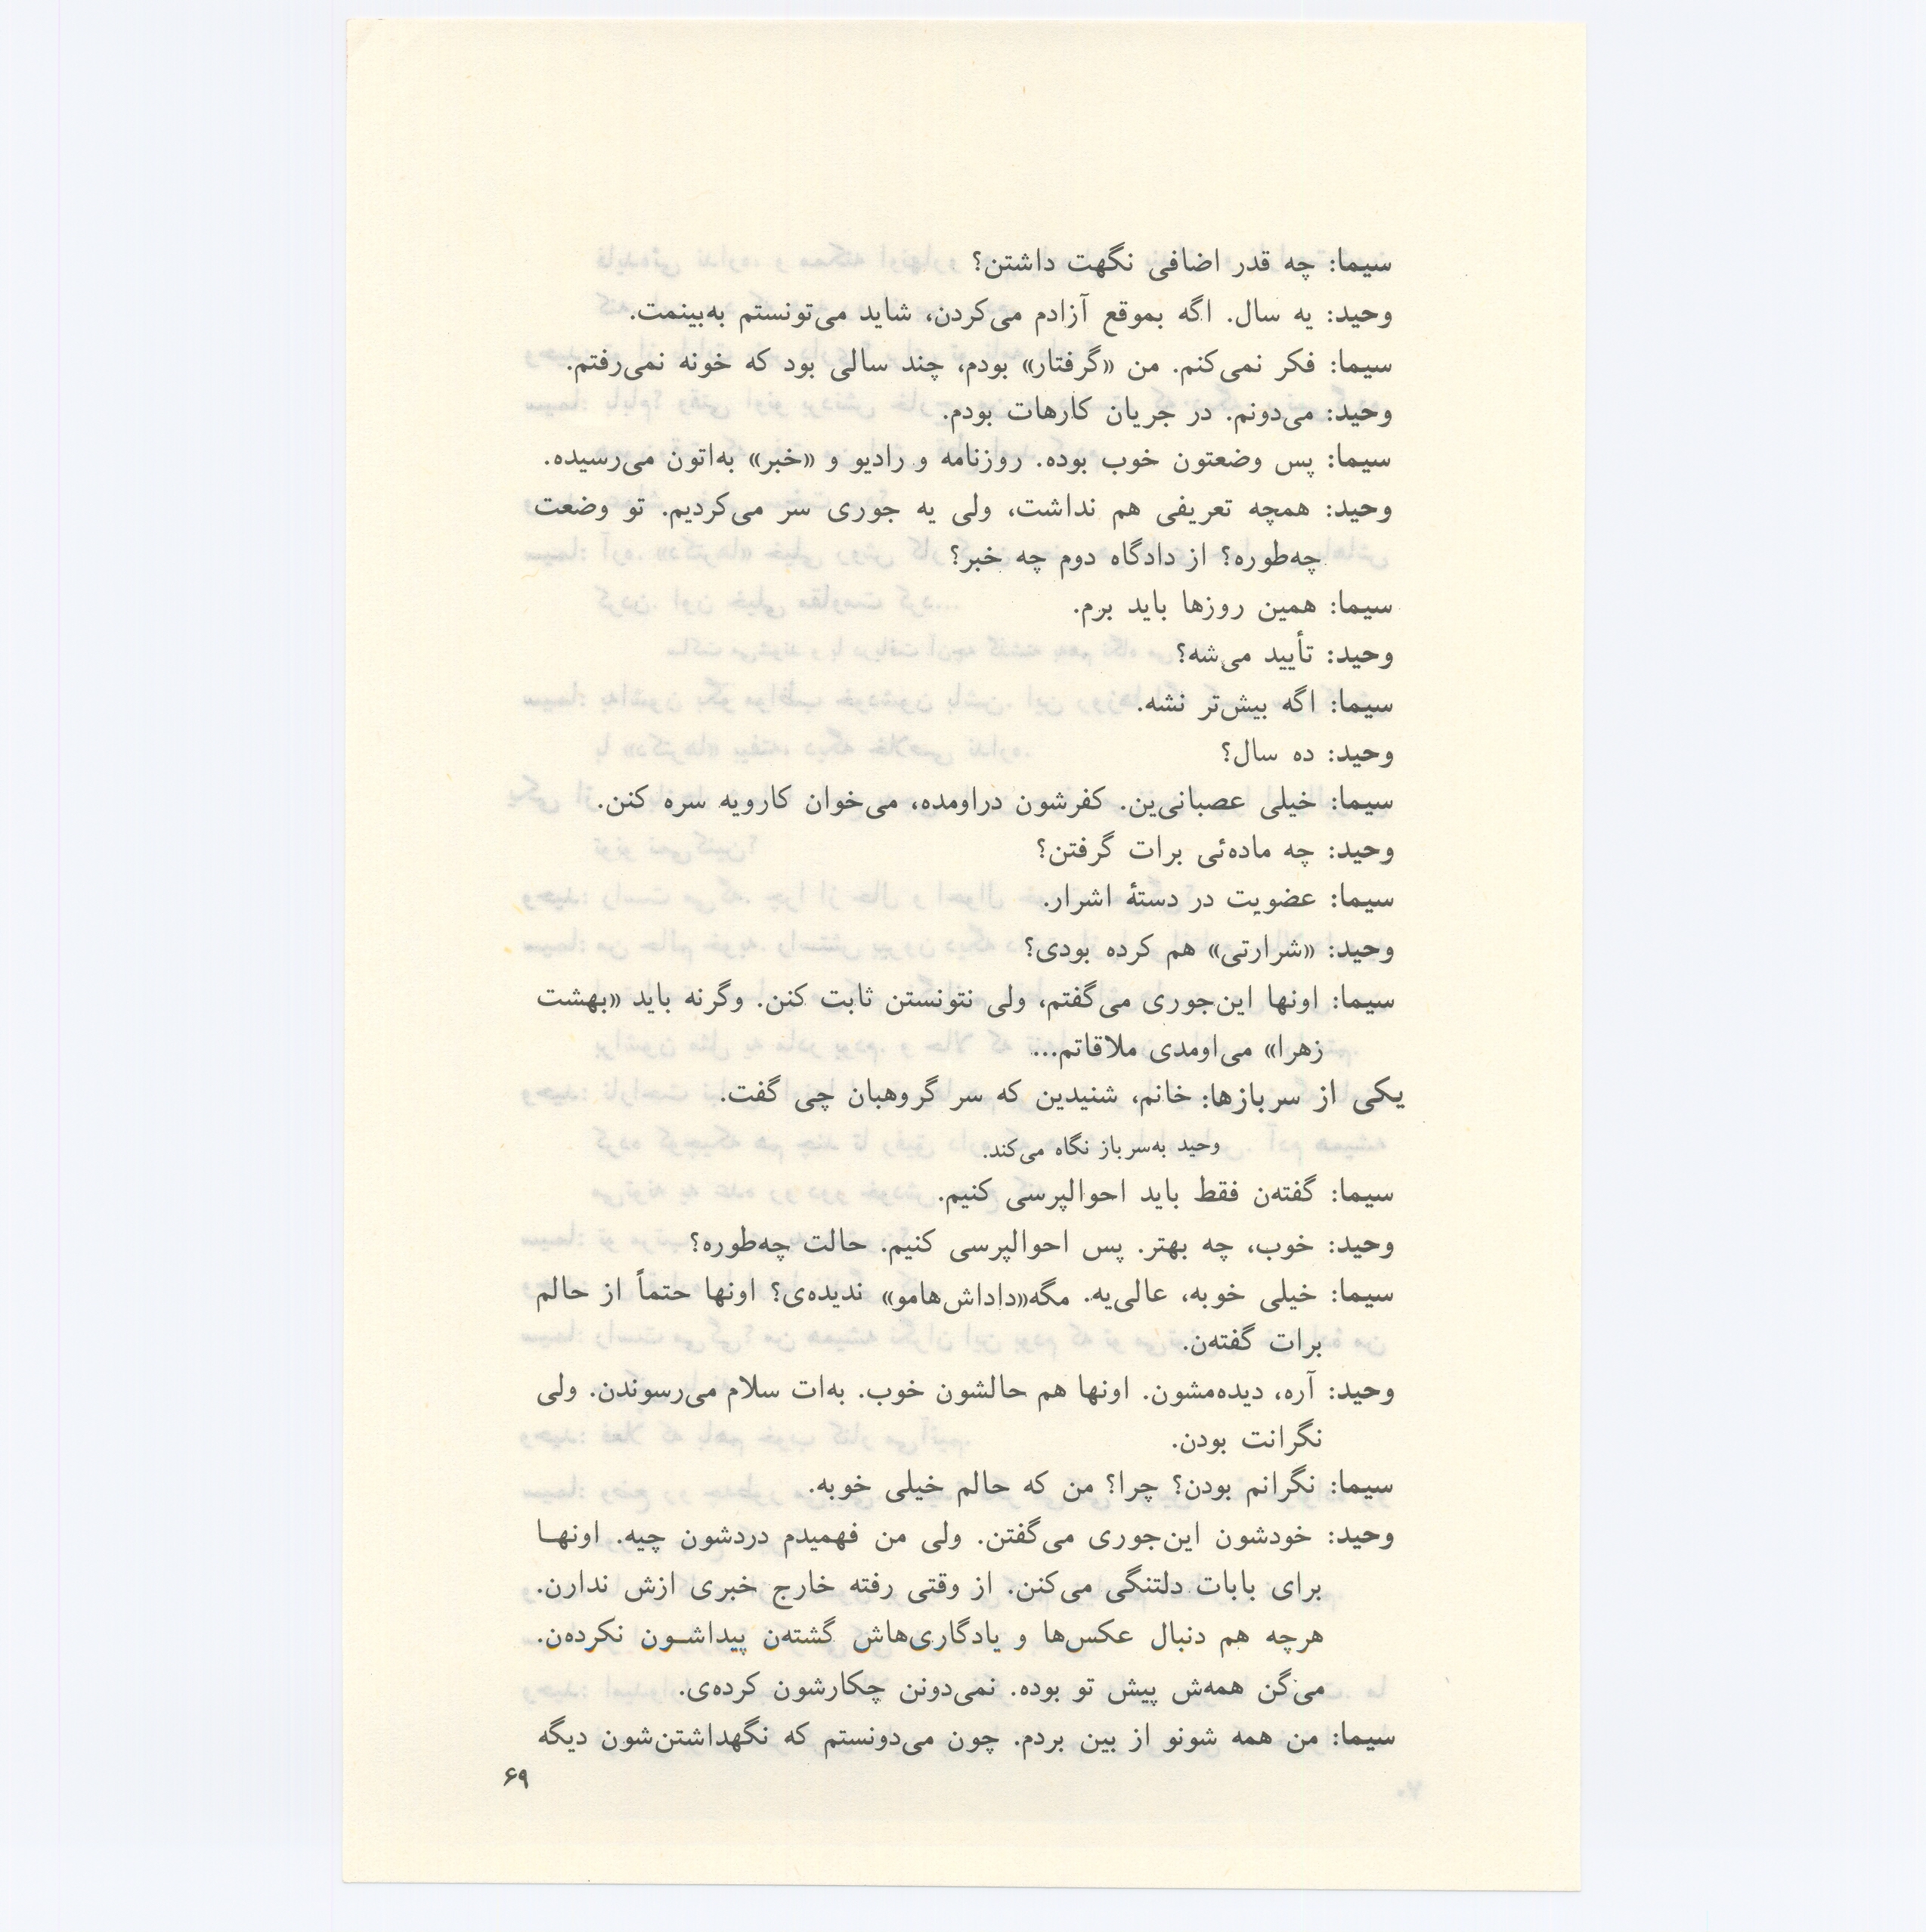 سیما: چه قدر اضافی نگهت داشتن؟
وحید: یه سال. اگه بموقع آزادم می‌کردن، شاید می‌تونستم به‌بینمت.
سیما: فکر نمی‌کنم. من «گرفتار» بودم، چند سالی بود که خونه نمی‌رفتم.
وحید: می‌دونم. در جریان کارهات بودم.
سیما: پس وضعتون خوب بوده. روزنامه و رادیو و «خبر» به‌اتون می‌رسیده.
وحید: همچه تعریفی هم نداشت، ولی یه جوری سر می‌کردیم. تو وضعت
چه‌طوره؟ از دادگاه دوم چه خبر؟
سیما: همین روزها باید برم.
وحید: تأیید می‌شه؟
سیما: اگه بیش‌تر نشه.
وحید: ده سال؟
سیما: خیلی عصبانی‌ین. کفرشون دراومده، می‌خوان کارویه سره کنن.
وحید: چه ماده‌ئی برات گرفتن؟
سیما: عضویت در دستهٔ اشرار.
وحید: «شرارتی» هم کرده بودی؟
سیما: اونها این‌جوری می‌گفتم، ولی نتونستن ثابت کنن. وگرنه باید «بهشت
زهرا» می‌اومدی ملاقاتم...
یکی از سربازها: خانم، شنیدین که سر گروهبان چی گفت.
وحید به‌سرباز نگاه می‌کند.
سیما: گفته‌ن فقط باید احوالپرسی کنیم.
وحید: خوب، چه بهتر. پس احوالپرسی کنیم. حالت چه‌طوره؟
سیما: خیلی خوبه، عالی‌یه. مگه«داداش‌هامو» ندیده‌ی؟ اونها حتماً از حالم
برات گفته‌ن.
وحید: آره، دیده‌مشون. اونها هم حالشون خوب. به‌ات سلام می‌رسوندن. ولی
نگرانت بودن.
سیما: نگرانم بودن؟ چرا؟ من که حالم خیلی خوبه.
وحید: خودشون این‌جوری می‌گفتن. ولی من فهمیدم دردشون چیه. اونهـا
برای بابات دلتنگی می‌کنن. از وقتی رفته خارج خبری ازش ندارن.
هرچه هم دنبال عکس‌ها و یادگاری‌هاش گشته‌ن پیداشـون نکرده‌ن.
می‌گن همه‌ش پیش تو بوده. نمی‌دونن چکارشون کرده‌ی.
سیما: من همه شونو از بین بردم. چون می‌دونستم که نگهداشتن‌شون دیگه
۶۹